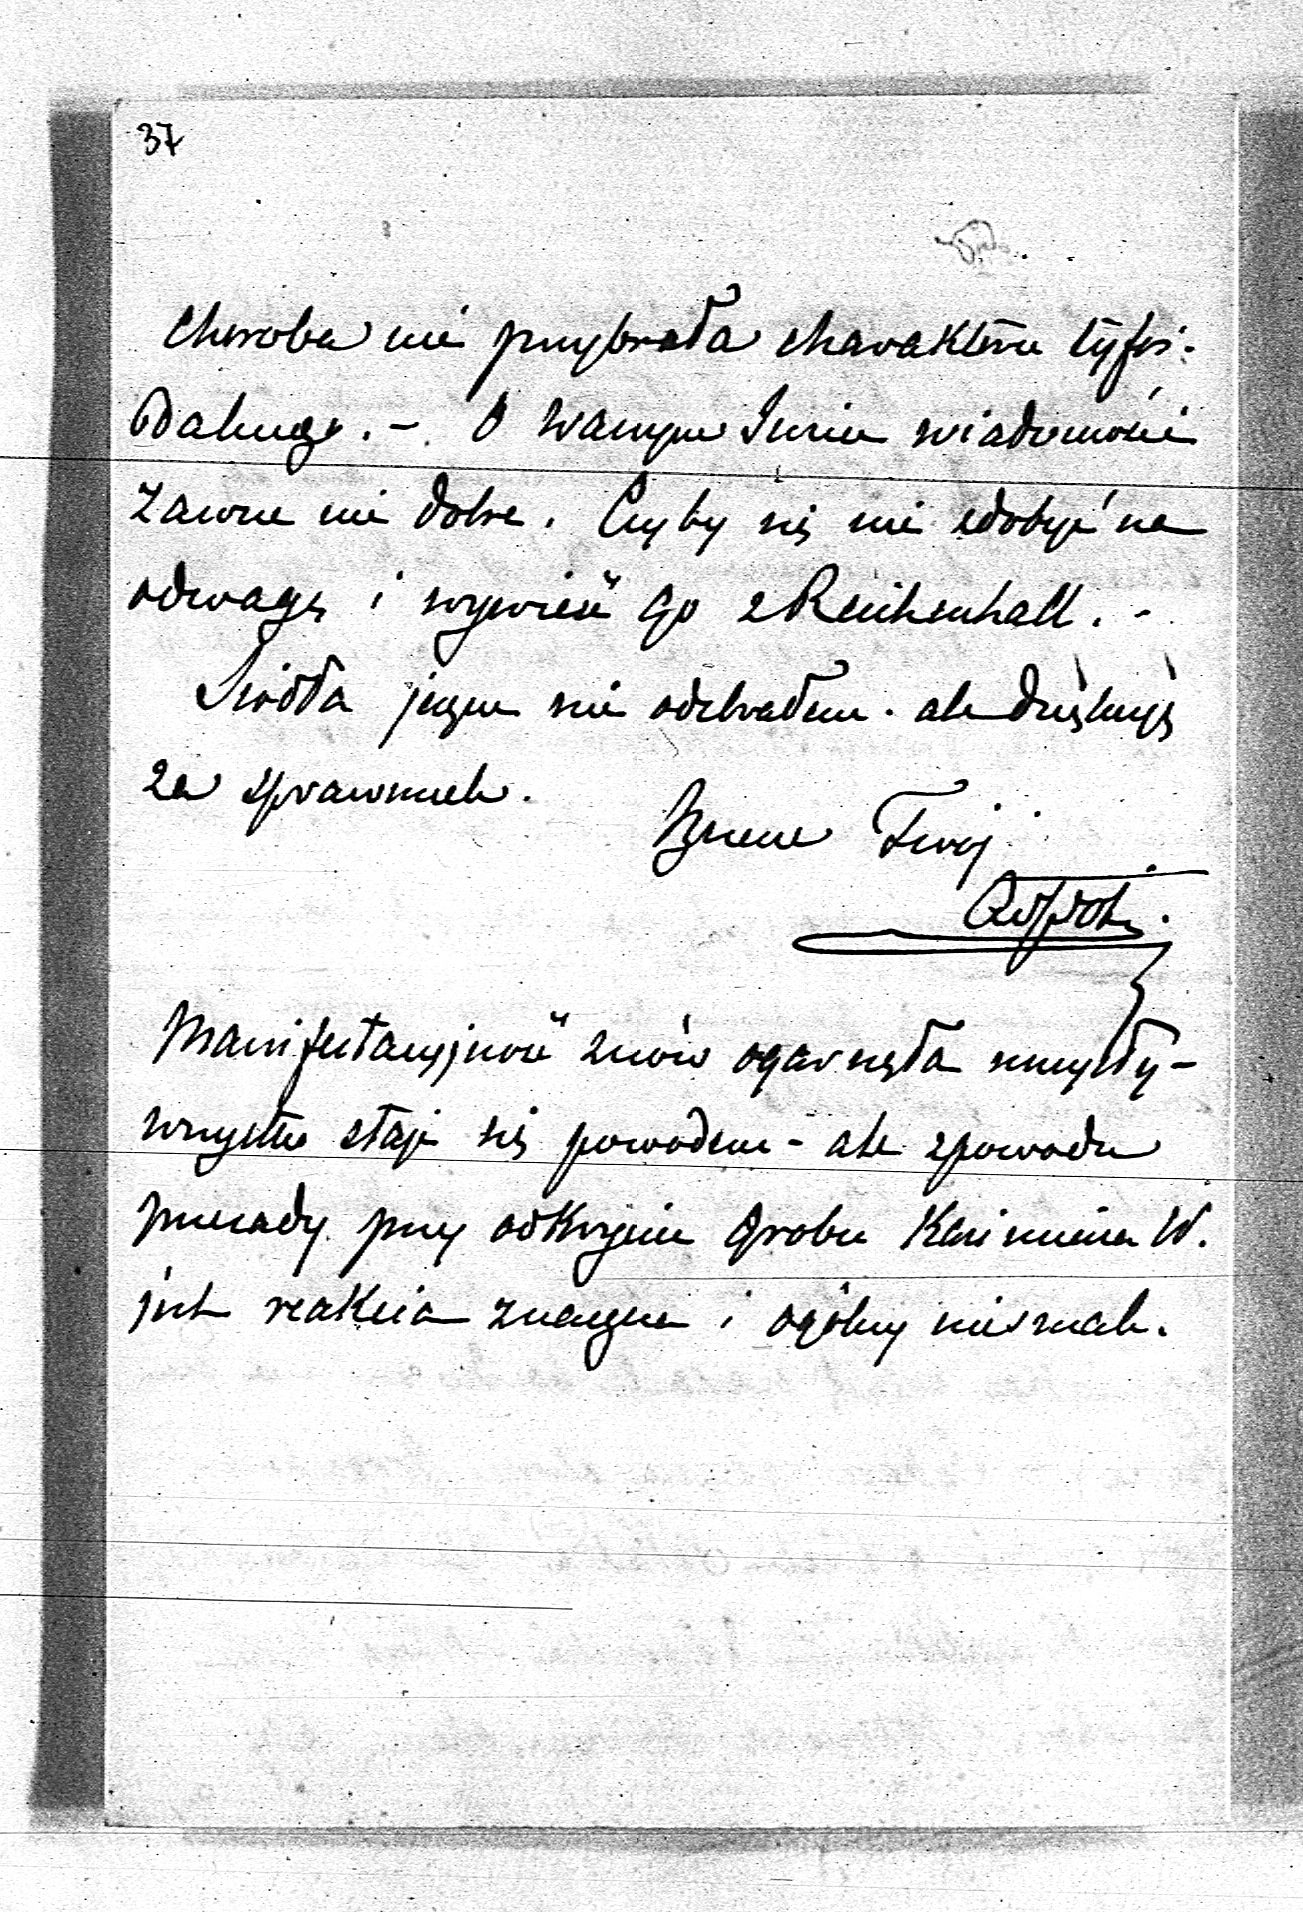 37
Choroba nie przybrała charakteru tyfoi-
dalnego. – O Waszym Juziu wiadomości
zawsze nie dobre. Czyby się nie zdobyć na
odwagę i wywieść go z Reichenhall. –
Siodła jeszcze nie odebrałem. ale dziękuję
za sprawunek.
Szczerze Twój
Manifestacyjność znów ogarnęła umysły –
wszystko staje się powodem – ale z powodu
przesady przy odkryciu grobu Kazimierza W.
jest reakcia znaczna i ogólny niesmak.